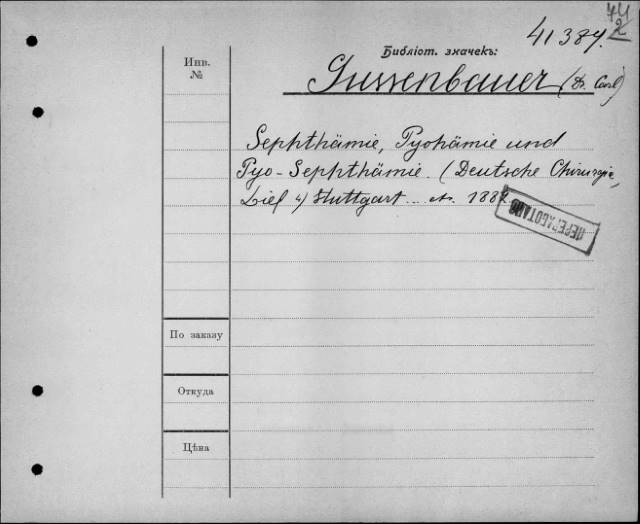 44
2
41384.
Библіот. значекъ:
Инв.
№
Gussenbauer (Dr. Carl)
Sephthämie, Pyohämie und
Pyo-Sephthämie. (Deutsche Chirurgie,
Lief 4) Stuttgart 1882
ПЕРЕРАБОТАНО
По заказу
Откуда
Цѣна